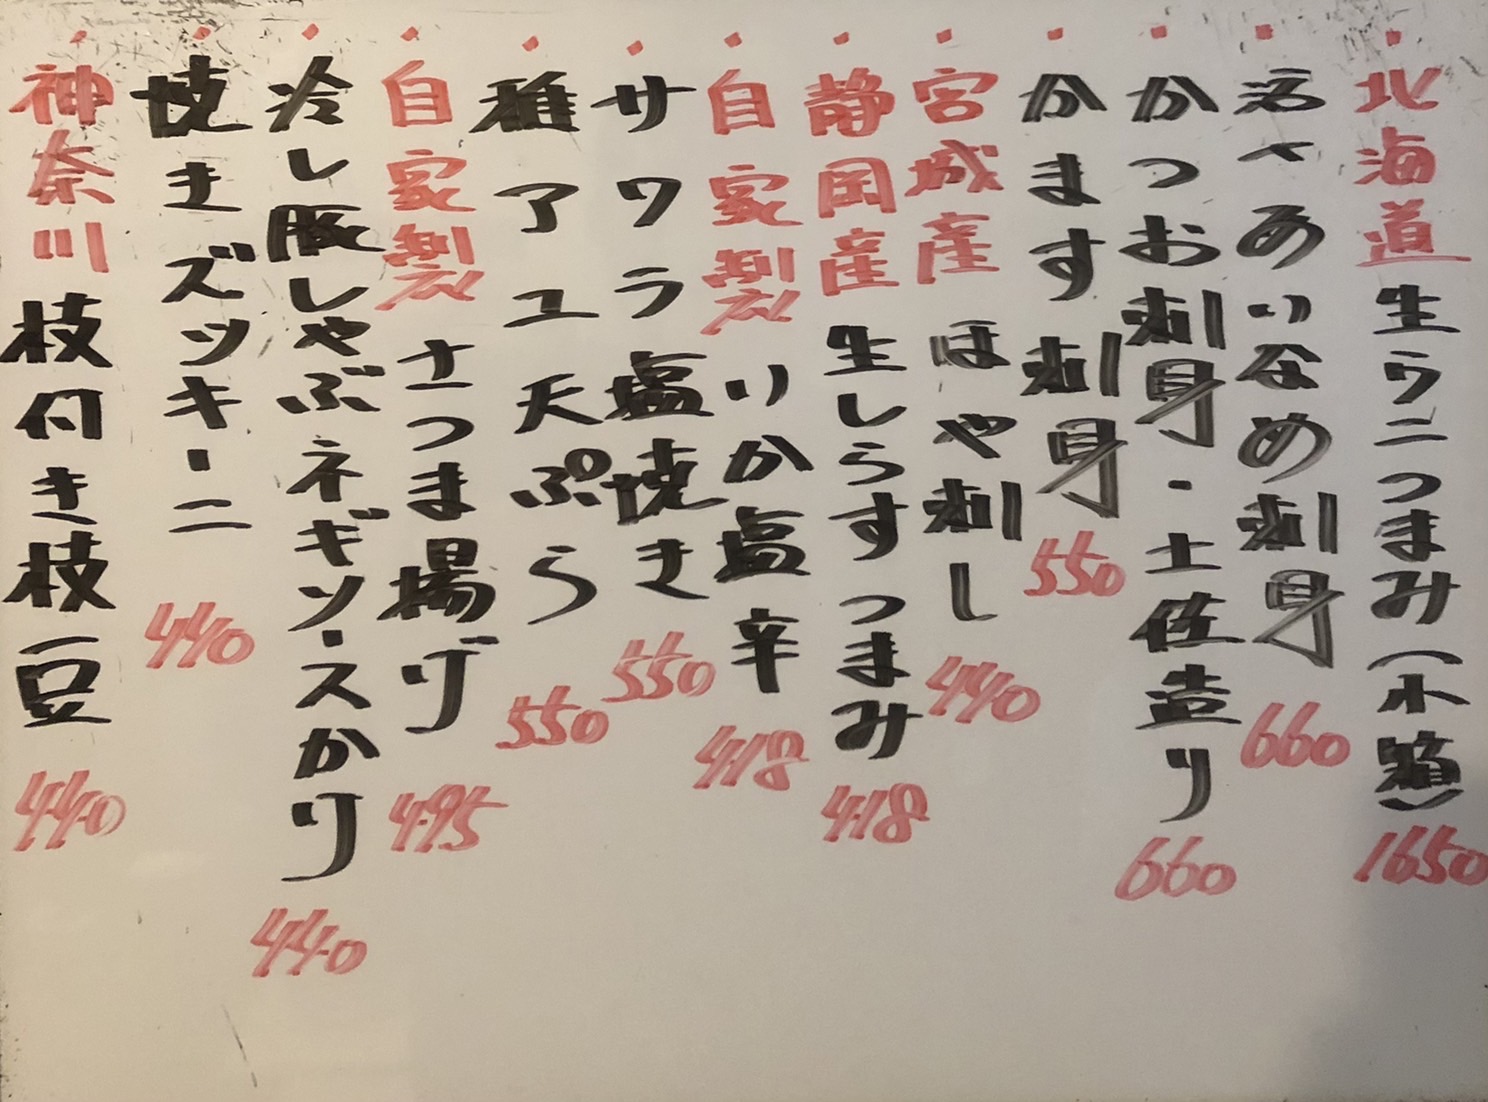 北海道 生ウニつまみ(小箱) 1650
活〆あいなめ刺身 660
かつお刺身・土佐造り 660
かます刺身 550
宮城産 ほや刺し 440
静岡産 生しらすつまみ 418
自家製 いか塩辛 418
サワラ塩焼き 550
稚アユ天ぷら 550
自家製 さつま揚げ 495
冷し豚しゃぶネギソースかけ 440
焼きズッキーニ 440
神奈川 枝付き枝豆 440